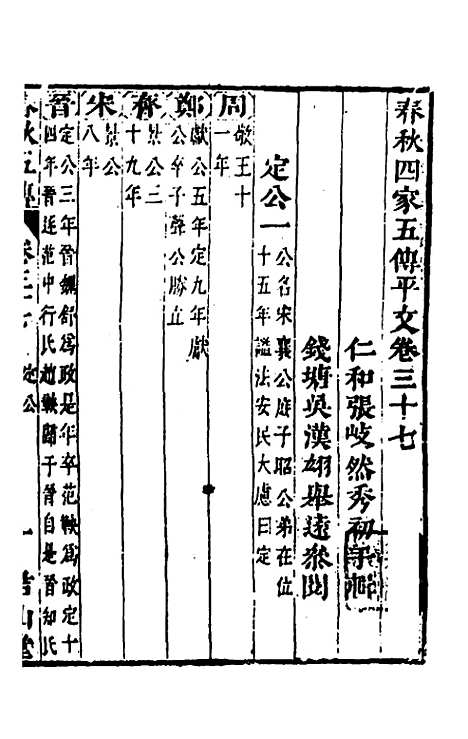 春秋四家五傳平文卷三十七
仁和張岐然秀初
錢塘吳漢翊舉遠叅閱
定公一
公名宋襄公庶子昭公弟在位
十五年謚法安民大慮曰定
周
敬王十
一年
鄭
獻公五年定九年獻
公卒子聲公勝立
齊
景公三
十九年
宋
景公
八年
晉
定公三年晉魏舒爲政是年卒范鞅爲政定十
四年晉逐范中行氏趙鞅歸于晉自是晉知氏
春秋五傳
卷三十七
定公
一
君山堂